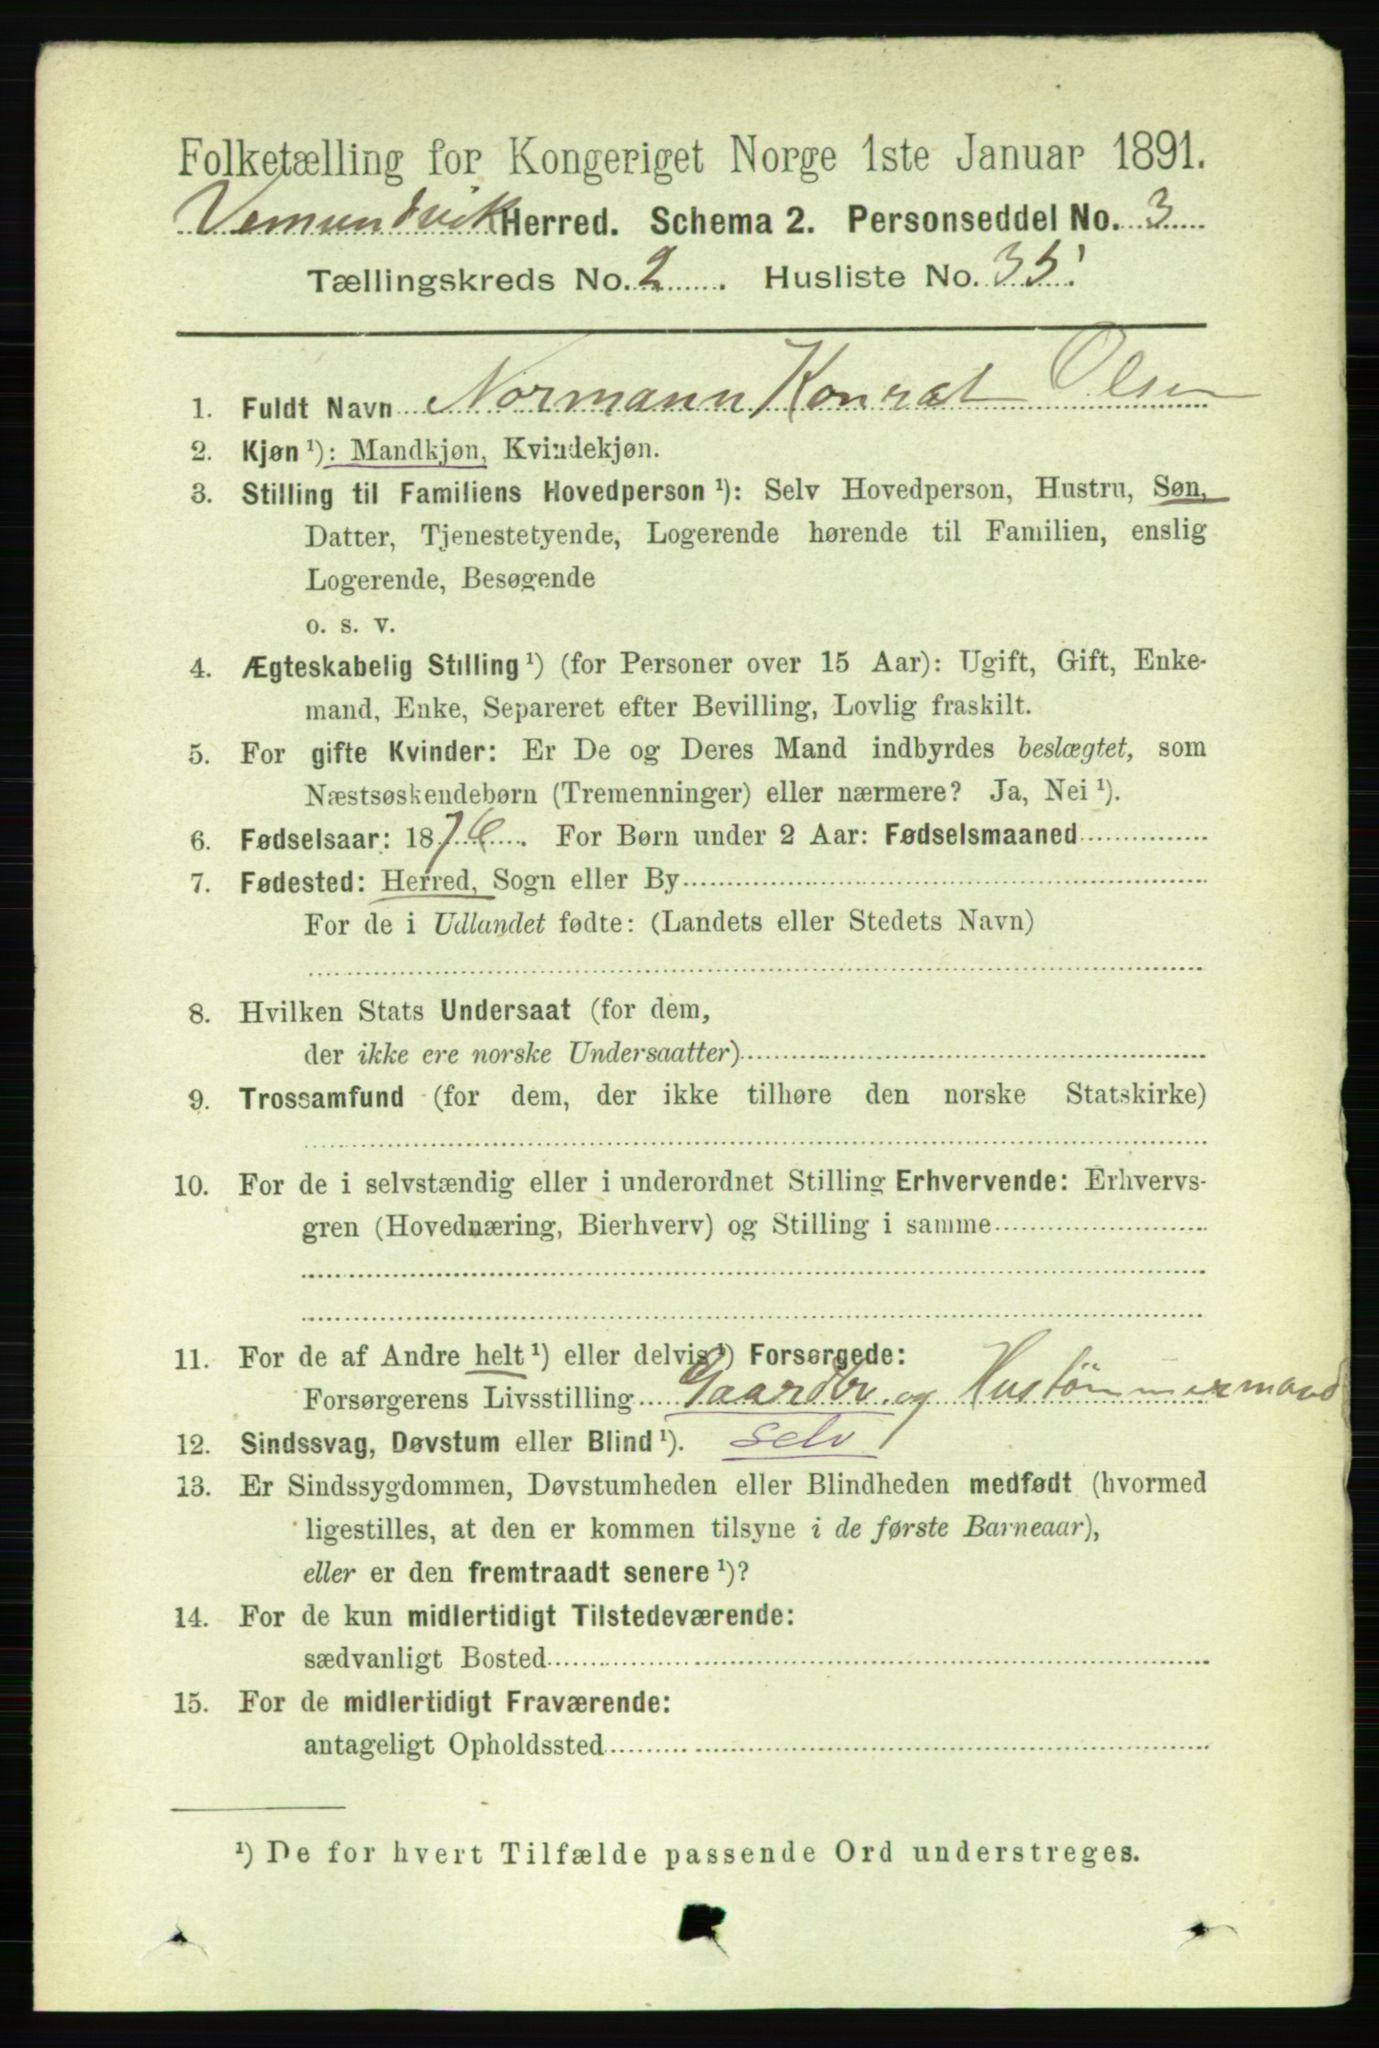 Folketælling for Kongeriget Norge 1ste Januar 1891.
Vemundvik Herred. Schema 2. Personseddel No. 3
Tællingskreds No. 2. Husliste No. 35.
1. Fuldt Navn Normann Konrat Olsen
2. Kjøn ¹): Mandkjøn, Kvindekjøn.
3. Stilling til Familiens Hovedperson ¹): Selv Hovedperson, Hustru, Søn,
Datter, Tjenestetyende, Logerende hørende til Familien, enslig
Logerende, Besøgende
o. s. v.
4. Ægteskabelig Stilling ¹) (for Personer over 15 Aar): Ugift, Gift, Enke-
mand, Enke, Separeret efter Bevilling, Lovlig fraskilt.
5. For gifte Kvinder: Er De og Deres Mand indbyrdes beslægtet, som
Næstsøskendebørn (Tremenninger) eller nærmere? Ja, Nei ¹).
6. Fødselsaar: 1876. For Børn under 2 Aar: Fødselsmaaned
7. Fødested: Herred, Sogn eller By
For de i Udlandet fødte: (Landets eller Stedets Navn)
8. Hvilken Stats Undersaat (for dem,
der ikke ere norske Undersaatter)
9. Trossamfund (for dem, der ikke tilhøre den norske Statskirke)
10. For de i selvstændig eller i underordnet Stilling Erhvervende: Erhvervs-
gren (Hovednæring, Bierhverv) og Stilling i samme
11. For de af Andre helt ¹) eller delvis ¹) Forsørgede:
Forsørgerens Livsstilling Gaardbr. og Hustømmermand
12. Sindssvag, Døvstum eller Blind ¹). selv
13. Er Sindssygdommen, Døvstumheden eller Blindheden medfødt (hvormed
ligestilles, at den er kommen tilsyne i de første Barneaar),
eller er den fremtraadt senere ¹)?
14. For de kun midlertidigt Tilstedeværende:
sædvanligt Bosted
15. For de midlertidigt Fraværende:
antageligt Opholdssted
¹) De for hvert Tilfælde passende Ord understreges.